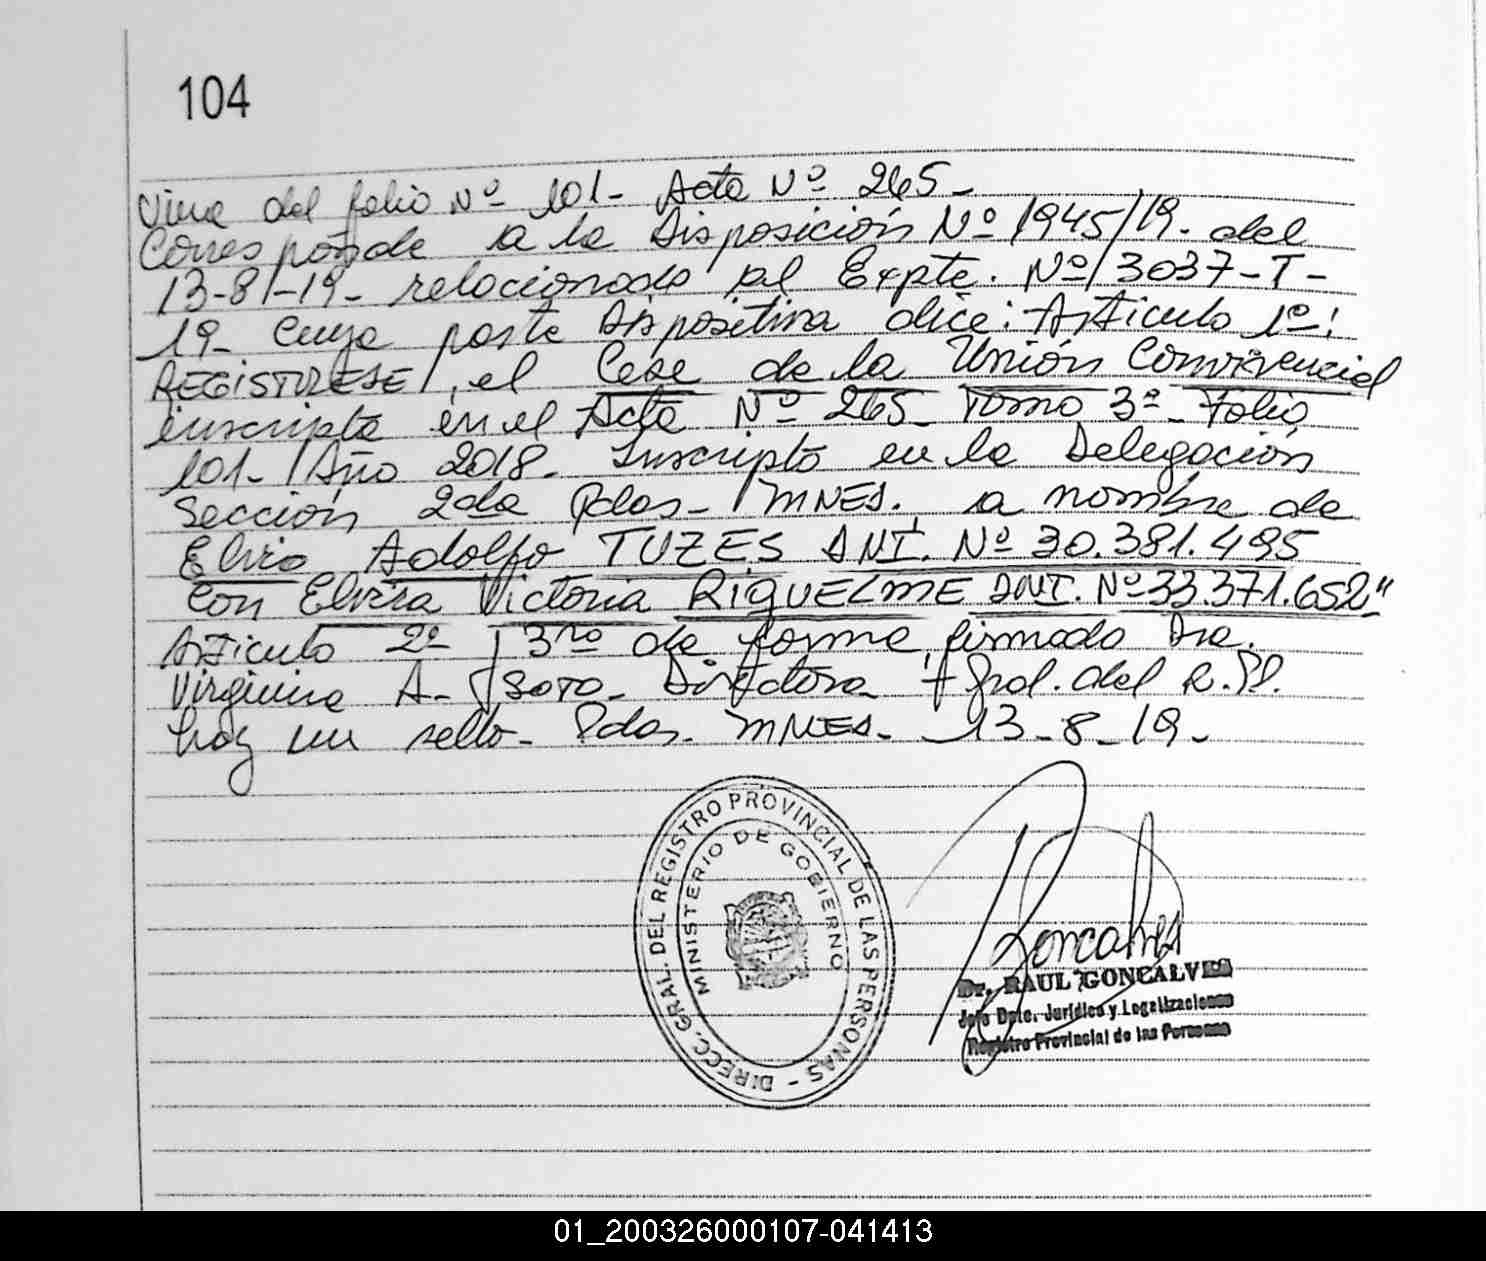 104
Viene del folio Nº 101- Acta Nº 265-
Corresponde a la Disposición Nº 1945/19. del
13-8-19- relacionado al Expte. Nº 3037-T-
19- Cuya parte Dispositiva dice: Articulo 1º:
REGISTRESE, el Cese de la Unión Convivencial
inscripta en el Acta Nº 265- Tomo 3º- Folio
101- Año 2018. Inscripto en la Delegación
Sección 2da Pdas- MNES. a nombre de
Elvio Adolfo TUZES DNI. Nº 30.381.495
con Elvira Victoria RIQUELME DNI. Nº 33.371.652"
Articulo 2º y 3ro de forma, firmado Dra.
Virginia A. SOTO- Directora Gral. del R.PP.
hay un sello- Pdas. MNES. 13-8-19-
DIRECC. GRAL. DEL REGISTRO PROVINCIAL DE LAS PERSONAS -
MINISTERIO DE GOBIERNO
Goncalves
Dr. RAUL GONCALVES
Jefe Dpto. Jurídico y Legalizaciones
Registro Provincial de las Personas
01_200326000107-041413